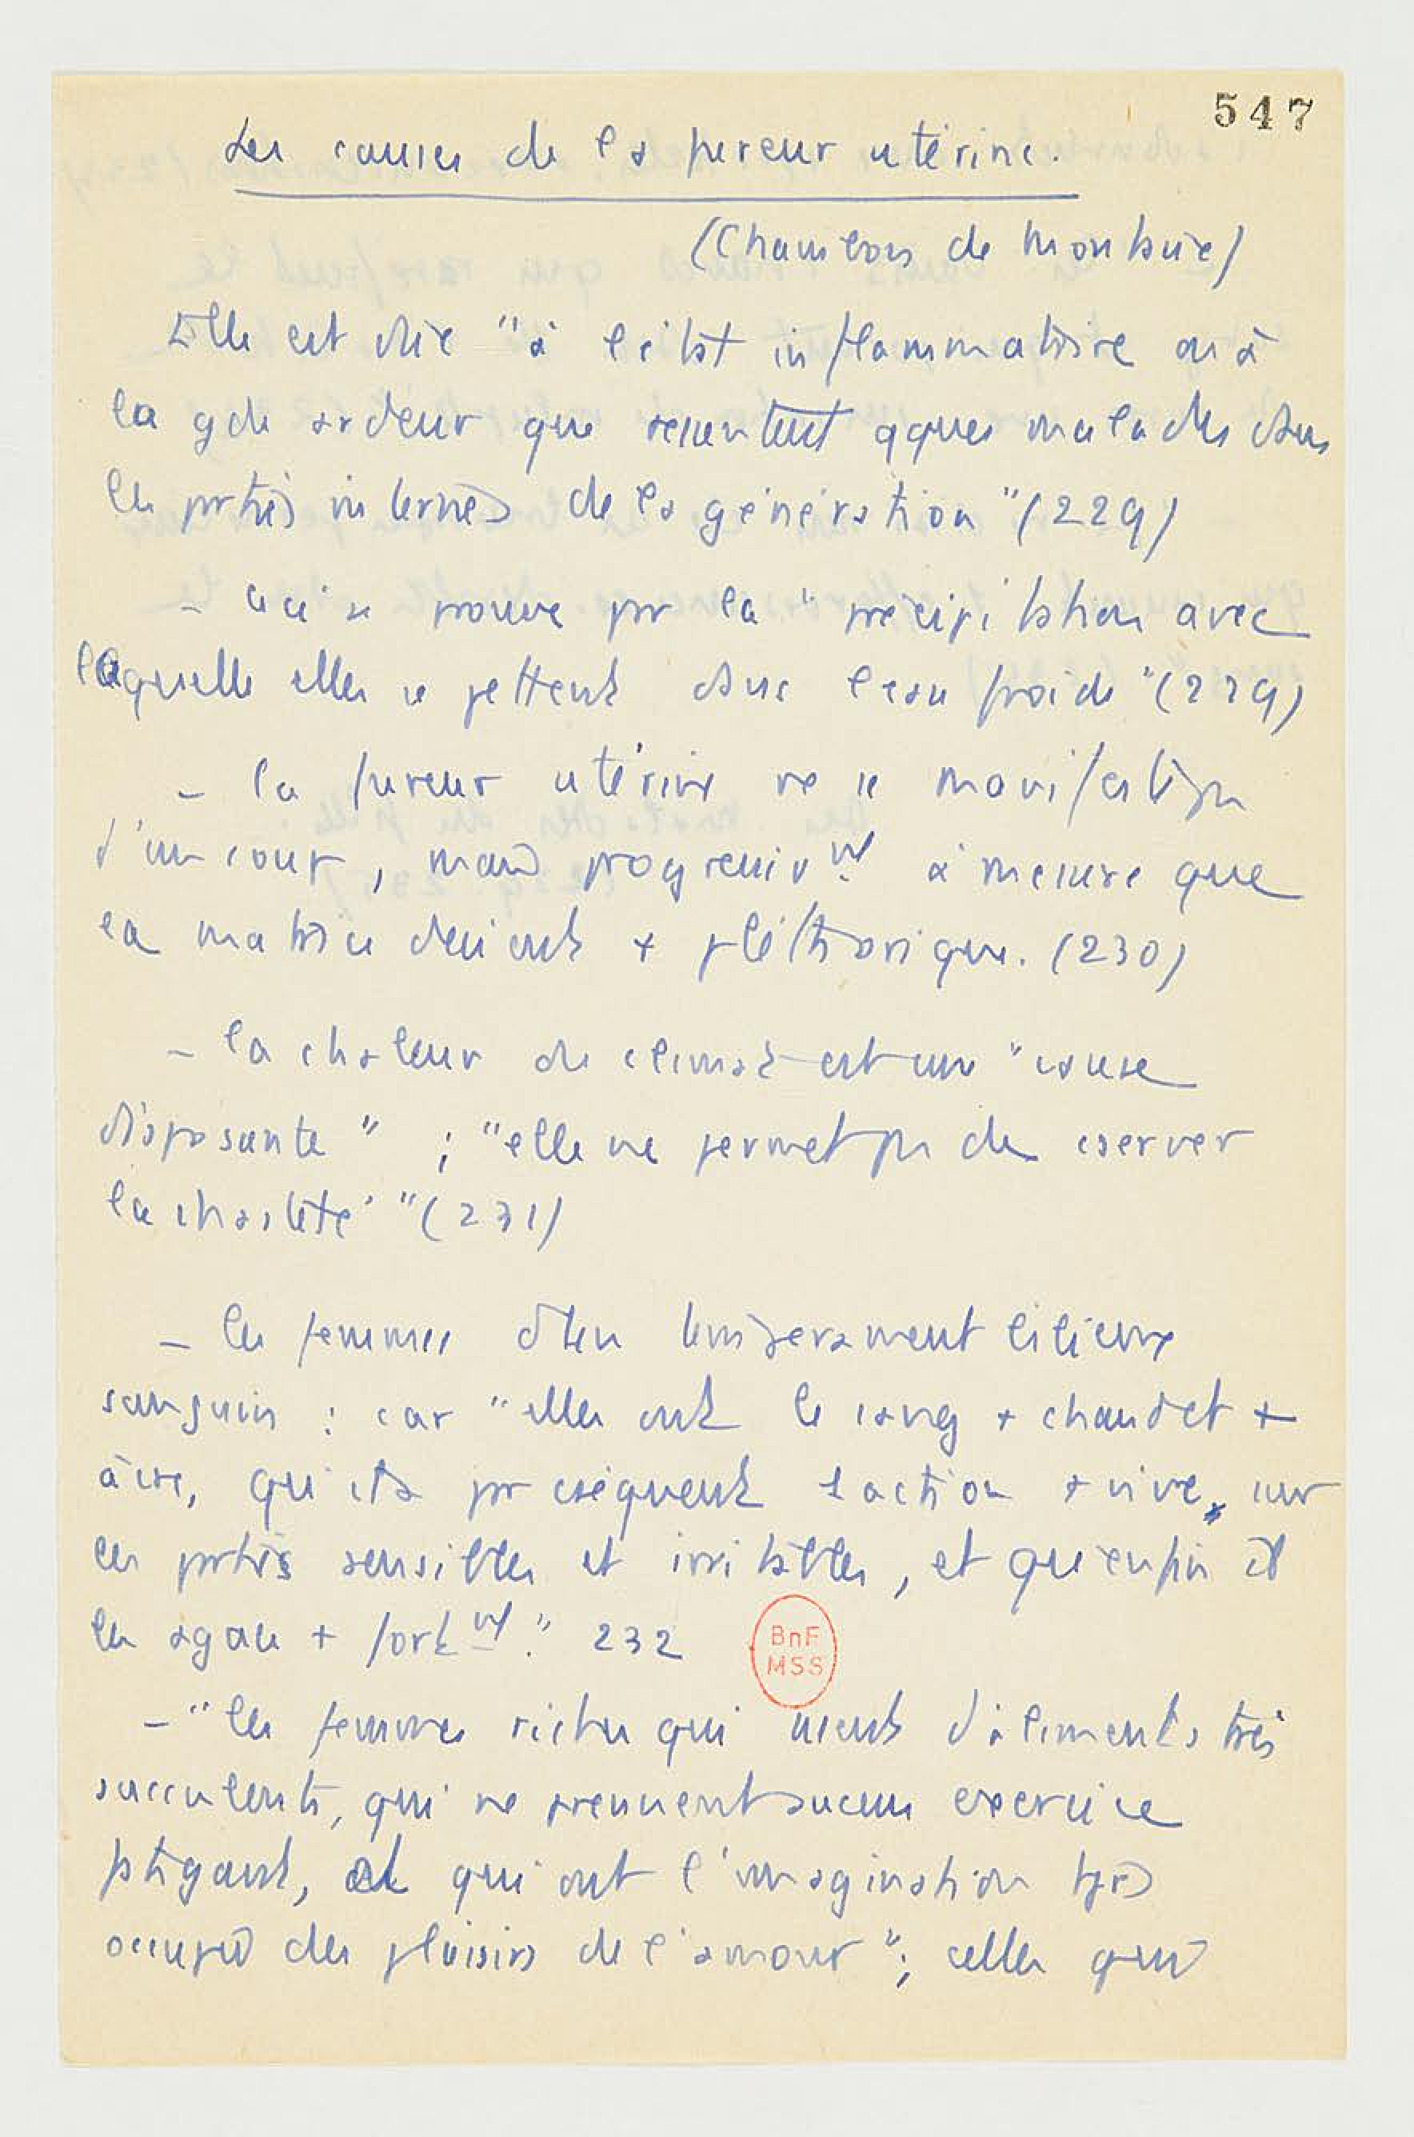 547
Les causes de la fureur utérine.
(Chambon de Montaux)
Elle est due "à l'état inflammatoire ou à
la gde ardeur que ressentent qques malades dans
les parties internes de la génération" (229)
- ceci se prouve par la "précipitation avec
laquelle elles se jettent dans l'eau froide" (229)
- la fureur utérine ne se manifeste pas
d'un coup, mais progressivt à mesure que
la matrice devient + pléthorique. (230)
- la chaleur du climat est une "cause
disposante" ; "elle ne permet pas de cserver
la chasteté" (231)
- les femmes d'un tempérament bilieux
sanguin : car "elles ont le sang + chaud et +
âcre, qu'il a par cséquent l'action + vive, sur
les parties sensibles et irritables, et qu'enfin il
les agace + fortt." 232
BnF
MSS
- "les femmes riches qui usent d'aliments très
succulents, qui ne prennent aucun exercice
fatigant, et qui ont l'imagination tjrs
occupée des plaisirs de l'amour" ; celles qui